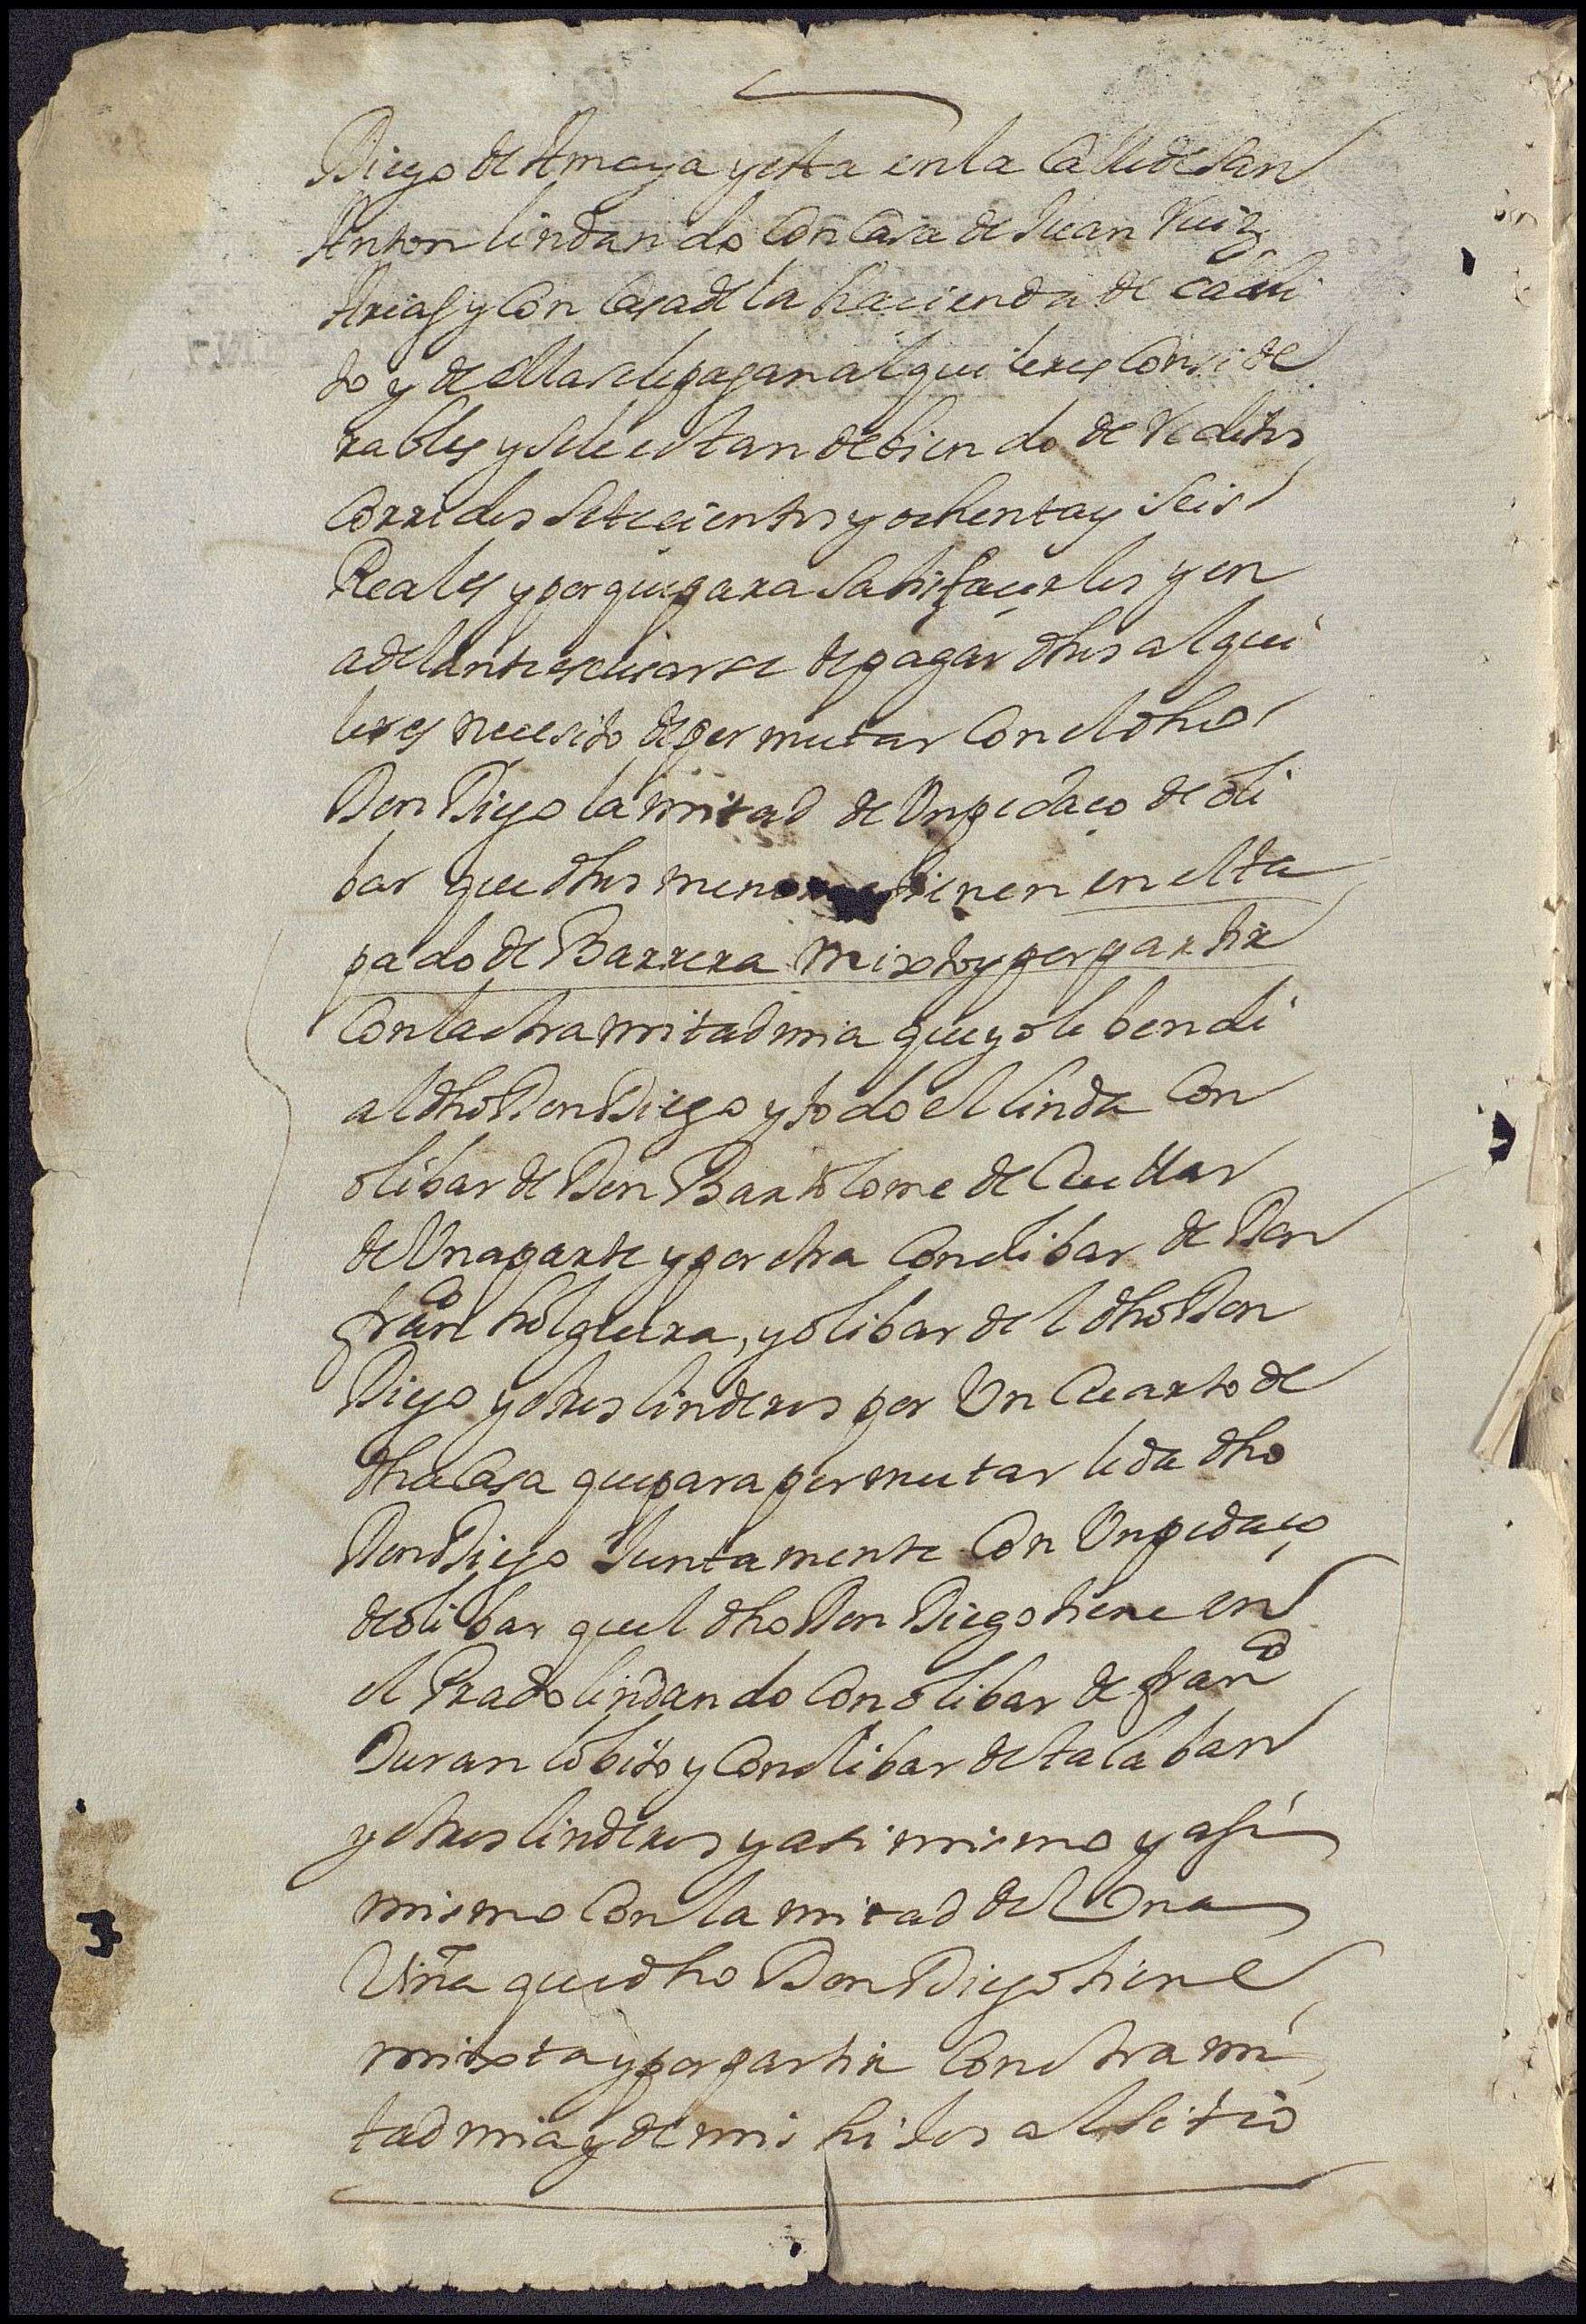 Diego de Amaya y esta en la Calle de San
Anton lindando con Casa de Juan Ruiz
Arias y con Casa de la hacienda de
to y de ellas se le pagan alquileres Conside
rables y se le estan debiendo de Reditos
Corridos Setecientos y ochenta y seis
Reales y porque para Satisfacerlos y en
adelante escusarse de pagar dhos alqui
leres necesito de permutar con el dho
Don Diego la mitad de Un pedaço de oli
bar que dhos menores tienen en el ta
pado de Barrera mixto y por partir
Con la otra mitad mia que yo le bendi
al dho Don Diego y todo el linda Con
olibar de Don Bartolome de Cuellar
de Una parte y por otra Con olibar de Don
franco holguera, y olibar del dho Don
Diego y otros linderos por Un Cuarto de
dha Casa que para permutar le da dho
Don Diego Juntamente Con Un pedaço
de olibar quel dho Don Diego tiene en
el Prado lindando Con olibar de franco
Duran lobito y Con olibar de talaban
y otros linderos y asi mismo y asi
mismo Con la mitad del Una
Viña que dho Don Diego tiene
mixta y por partir Con otra mi
tad mia y de mis hijos al sitio